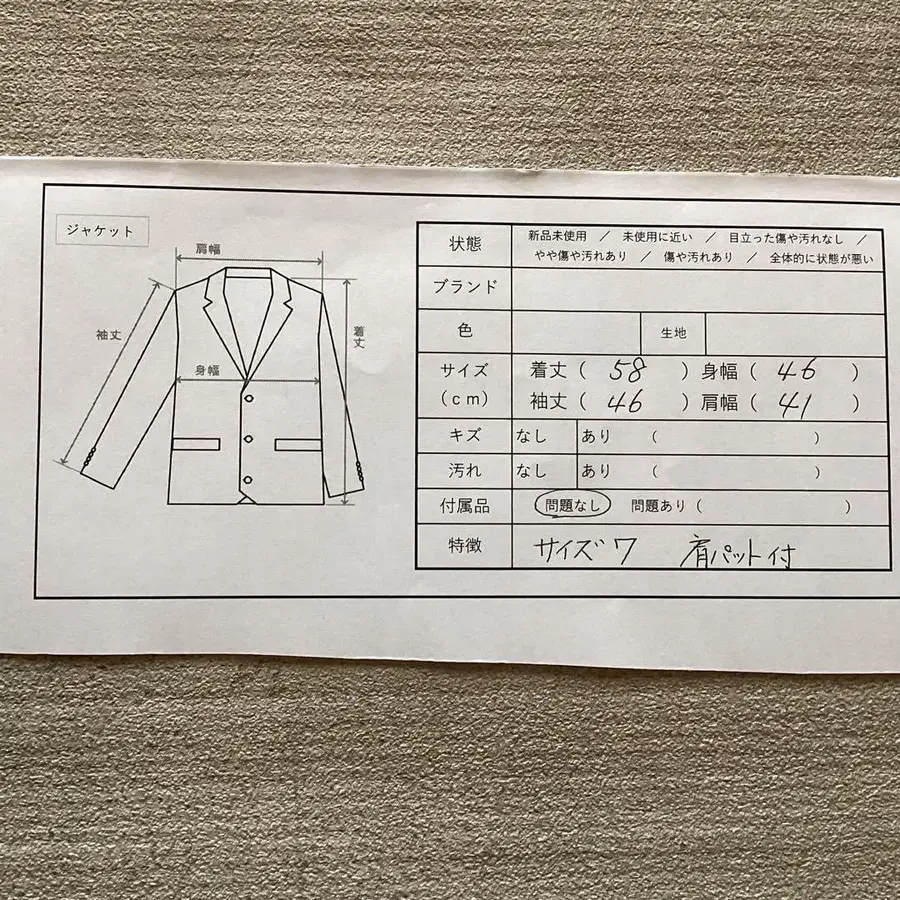 ジャケット
肩幅
袖丈
着丈
身幅
状態 新品未使用 / 未使用に近い / 目立った傷や汚れなし /
やや傷や汚れあり / 傷や汚れあり / 全体的に状態が悪い
ブランド
色 生地
サイズ 着丈 ( 58 ) 身幅 ( 46 )
(cm) 袖丈 ( 46 ) 肩幅 ( 41 )
キズ なし あり ( )
汚れ なし あり ( )
付属品 問題なし 問題あり ( )
特徴 サイズ7 肩パット付